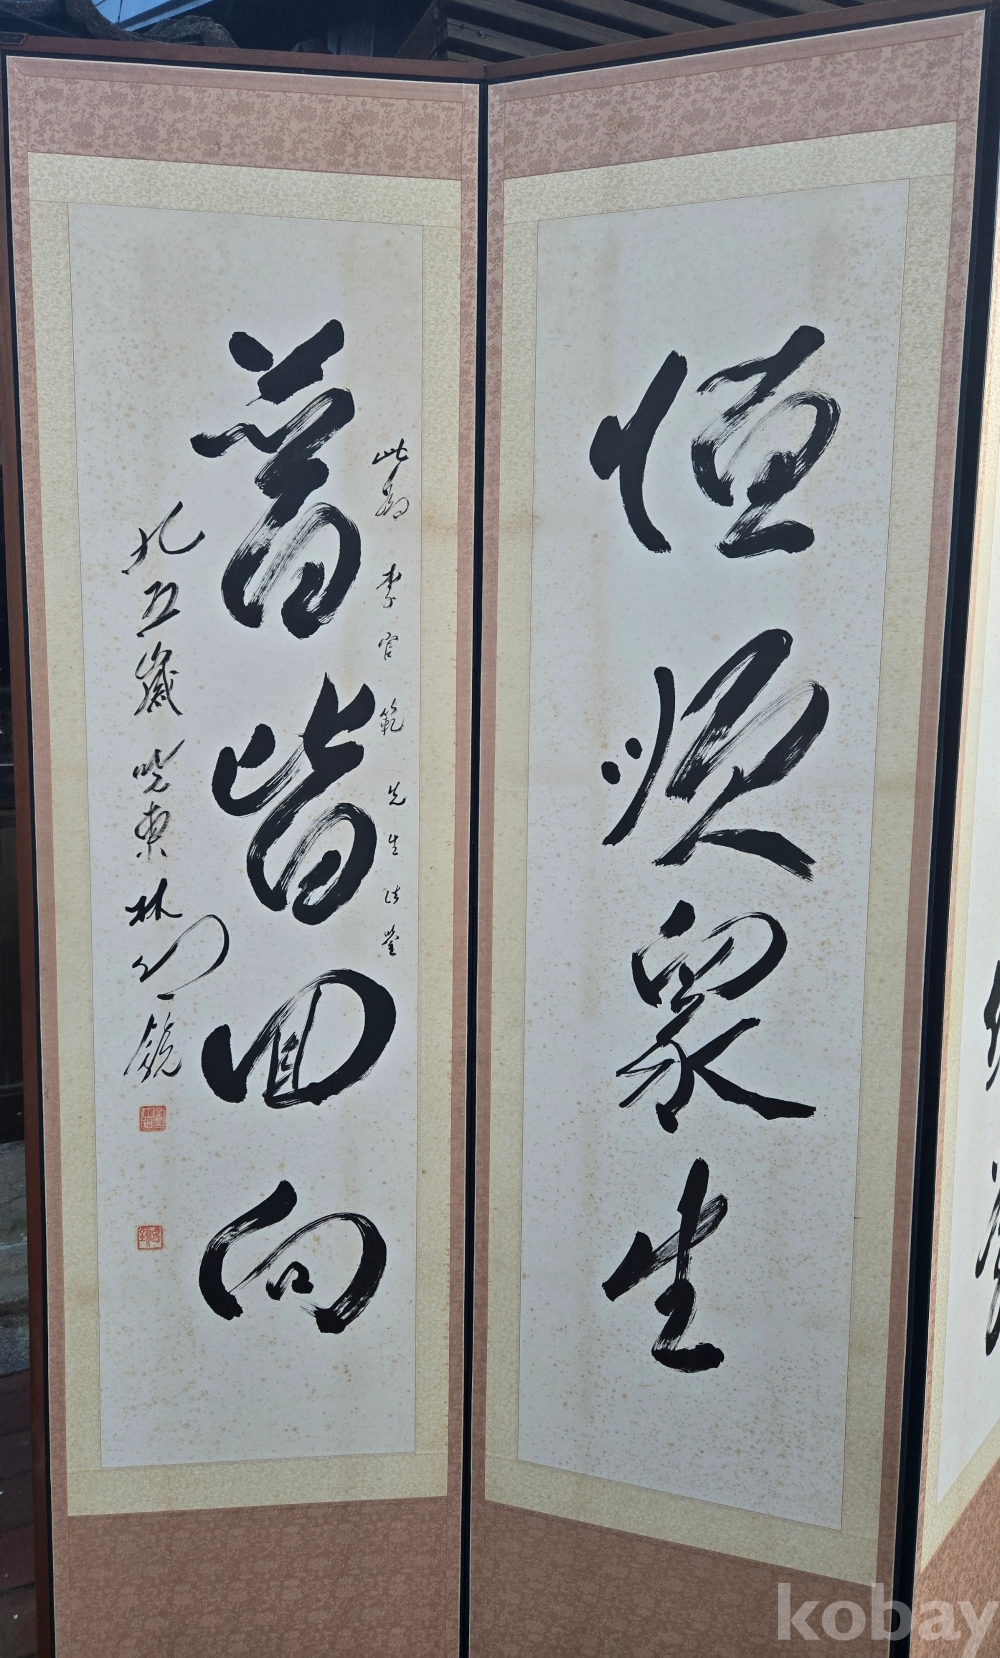 恒順衆生
普皆回向
此為 李官範 先生 法鑒
九五歲 曉東 林
kobay